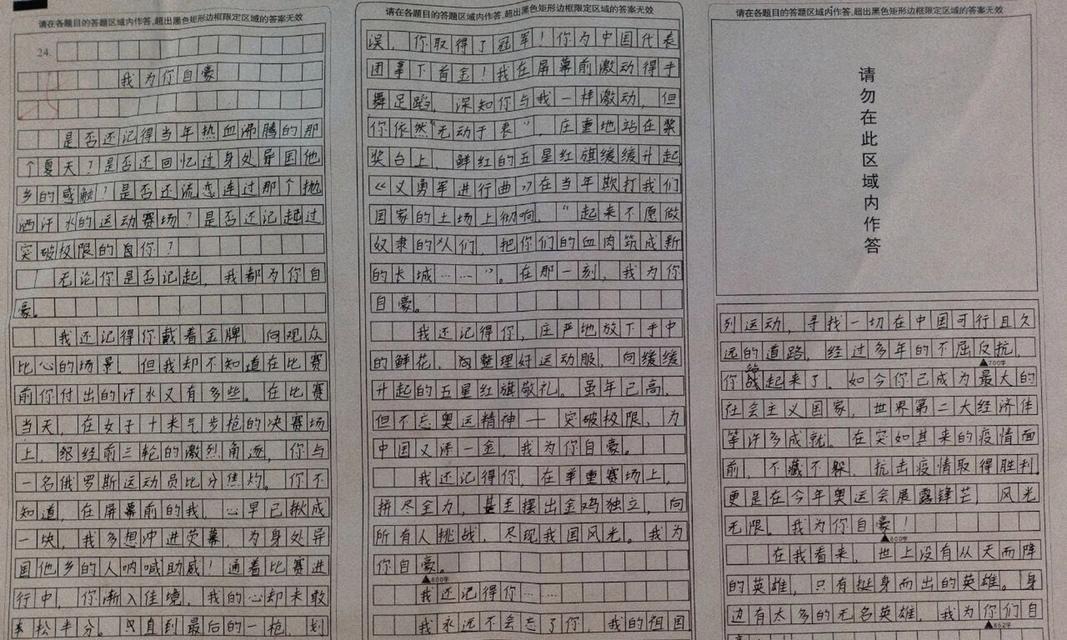 请在各题目的答题区域内作答,超出黑色矩形边框限定区域的答案无效
24.
我为你自豪
是否还记得当年热血沸腾的那
个夏天？是否还回忆过身处异国他
乡的感触？是否还流恋连过那个抛
洒汗水的运动赛场？是否还记起过
突破极限的自你？
无论你是否记起，我都为你自
豪。
我还记得你戴着金牌，向观众
比心的场景。但我却不知道在比赛
前你付出的汗水又有多些。在比赛
当天，在女子十米气步枪的决赛场
上，经前三轮的激烈角逐，你与
一名俄罗斯运动员比分焦灼。你不
知道，在屏幕前的我，心早已揪成
一块，我多想冲进荧幕，为身处异
国他乡的人呐喊助威！随着比赛进
行中，你渐入佳境，我的心却未敢
松半分。直到最后的一枪，
请在各题目的答题区域内作答,超出黑色矩形边框限定区域的答案无效
误，你取得了冠军！你为中国代表
团拿下首金！我在屏幕前激动得手
舞足蹈，深知你与我一样激动，但
你依然“无动于衷”，庄重地站在奖
奖台上，鲜红的五星红旗缓缓升起
《义勇军进行曲》在当年欺打我们
国家的土场上彻响，“起来不愿做
奴隶的人们，把你们的血肉筑成新
的长城……”。在那一刻，我为你
自豪。
我还记得你，庄严地放下手中
的鲜花，整理好运动服，向缓缓
升起的五星红旗敬礼。虽年已高，
但不忘奥运精神——突破极限，为
中国又添一金，我为你自豪。
我还记得你，在举重赛场上，
拼尽全力，甚至摆出金鸡独立，向
所有人挑战，尽现我国风光。我为
你自豪。
▲600字
我还记得你……
我永远不会忘了你，我的祖国
请在各题目的答题区域内作答,超出黑色矩形边框限定区域的答案无效
请勿在此区域内作答
列运动，寻找一切在中国可行且久
远的道路，经过多年的不屈反抗，
▲700字
你站起来了。如今你已成为最大的
社会主义国家，世界第二大经济体
等许多成就。在突如其来的疫情面
前，不藏不躲，抗击疫情取得胜利。
更是在今年奥运会展露锋芒，风光
无限。我为你自豪！
▲800字
在我看来，世上没有从天而降
的英雄，只有挺身而出的英雄。身
边有太多的无名英雄，我为你们自
▲852字